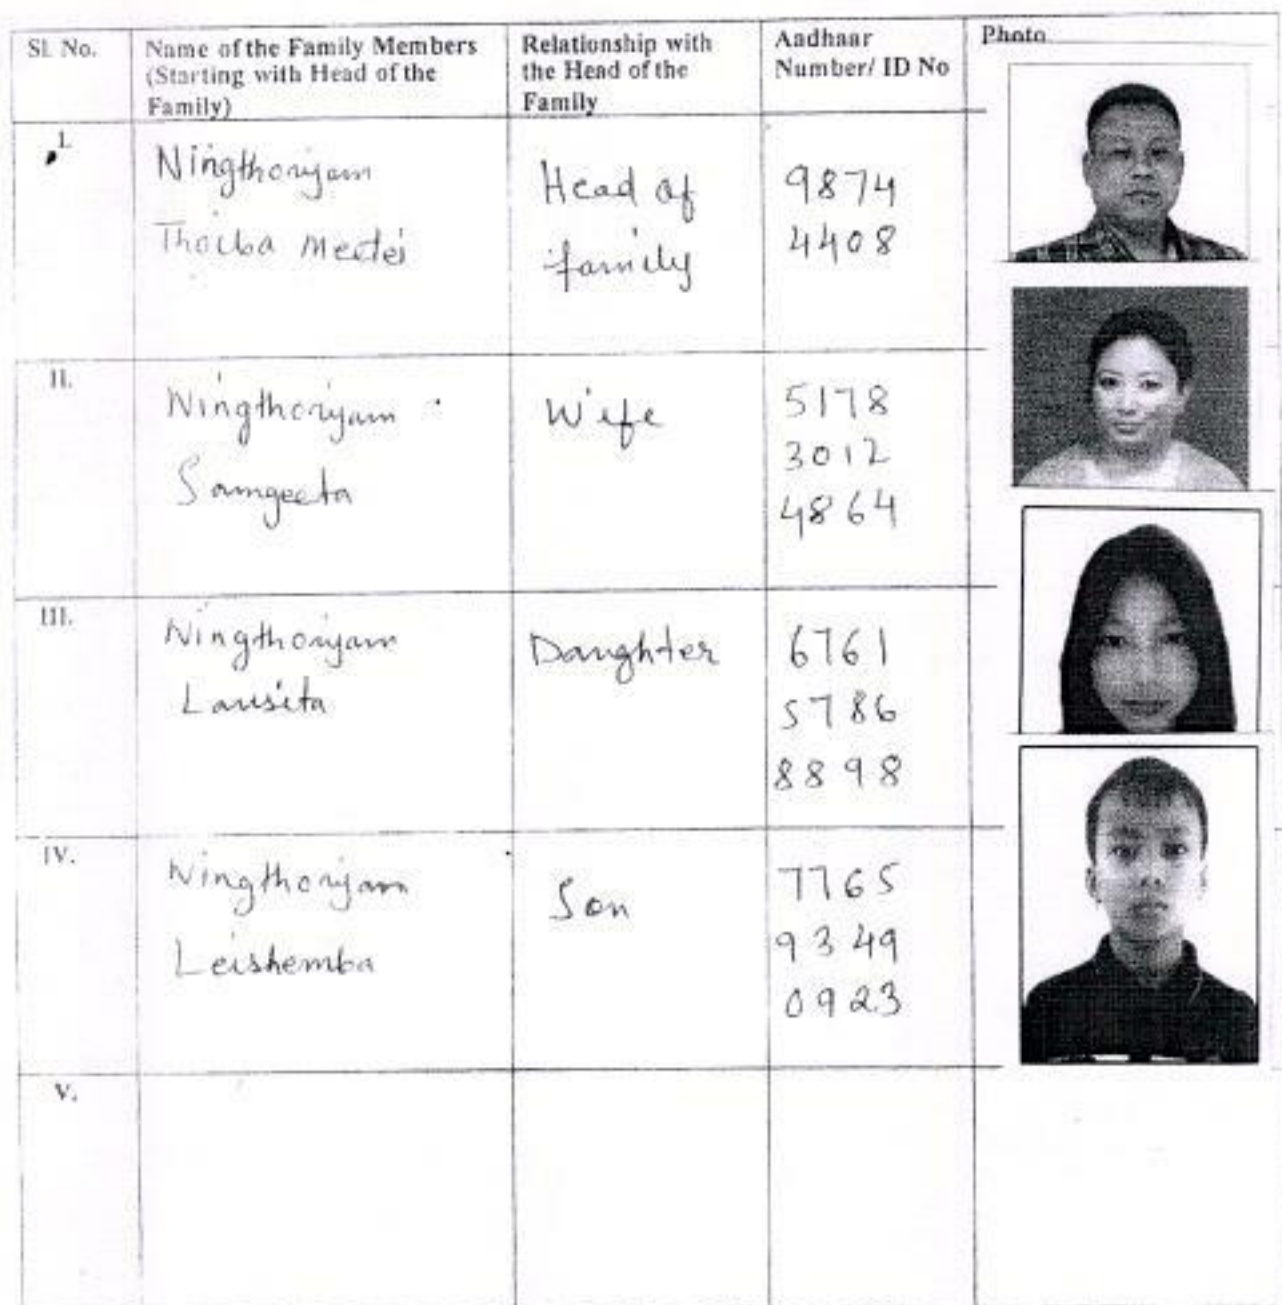 Sl. No.
Name of the Family Members
(Starting with Head of the
Family)
Relationship with
the Head of the
Family
Aadhaar
Number/ ID No
Photo
I.
Ningthoujam
Thoiba Meetei
Head of
family
9874
4408
II.
Ningthoujam
Samgeeta
Wife
5178
3012
4864
III.
Ningthoujam
Lansita
Daughter
6761
5786
8898
IV.
Ningthoujam
Leishemba
Son
7765
9349
0923
V.